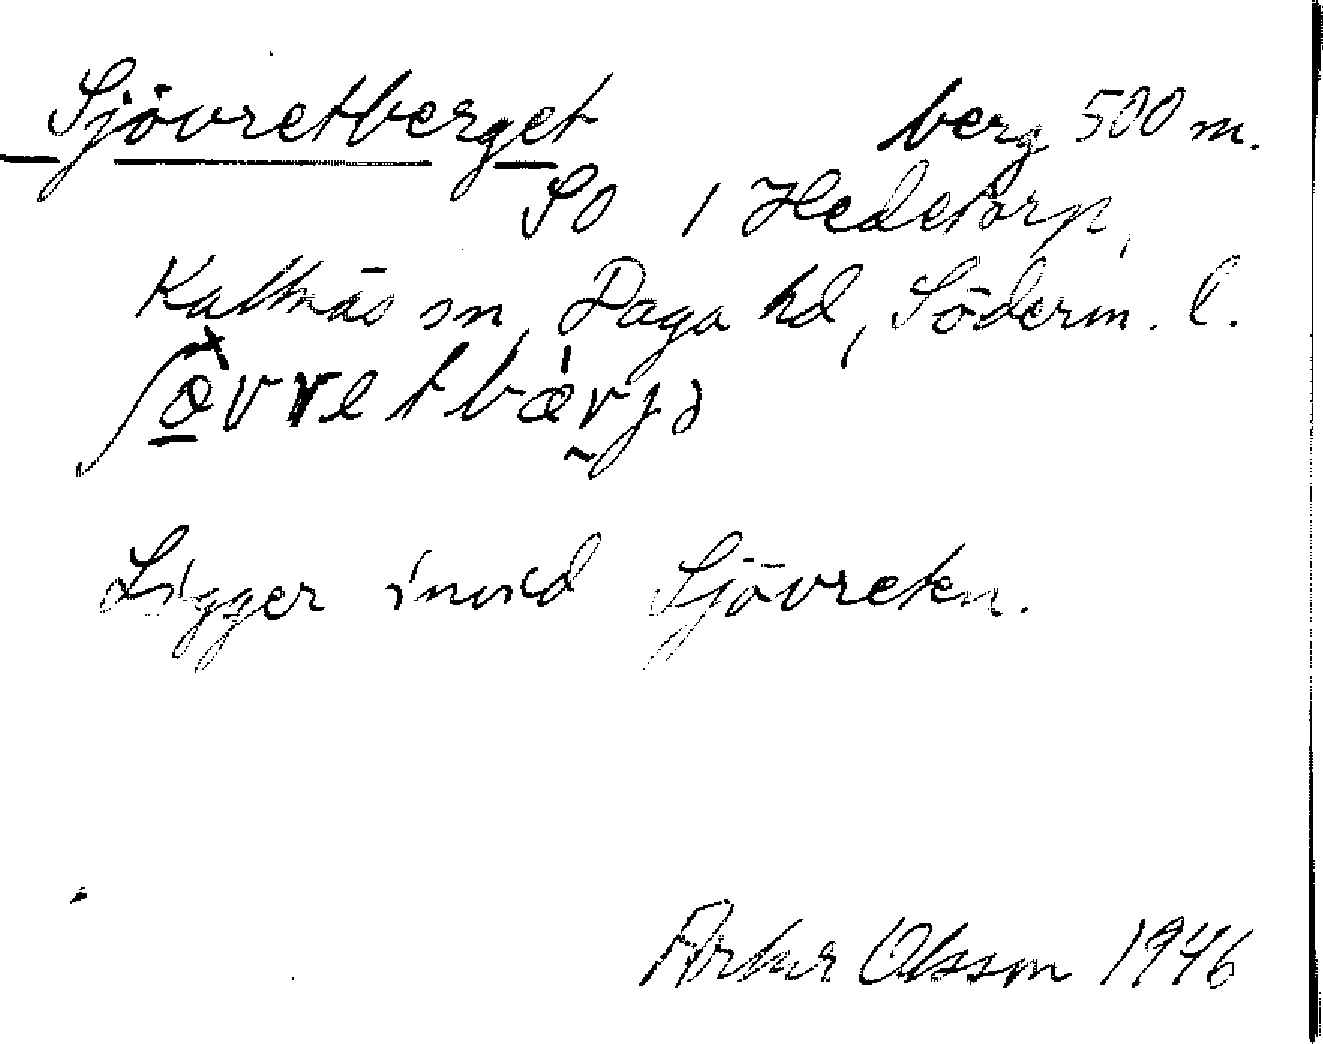 Sjövretberget berg 500 m.
SO / Hedetorp,
Kattnäs sn, Daga hd, Söderm. l.
Ligger invid Sjövreten.
Artur Olsson 1946